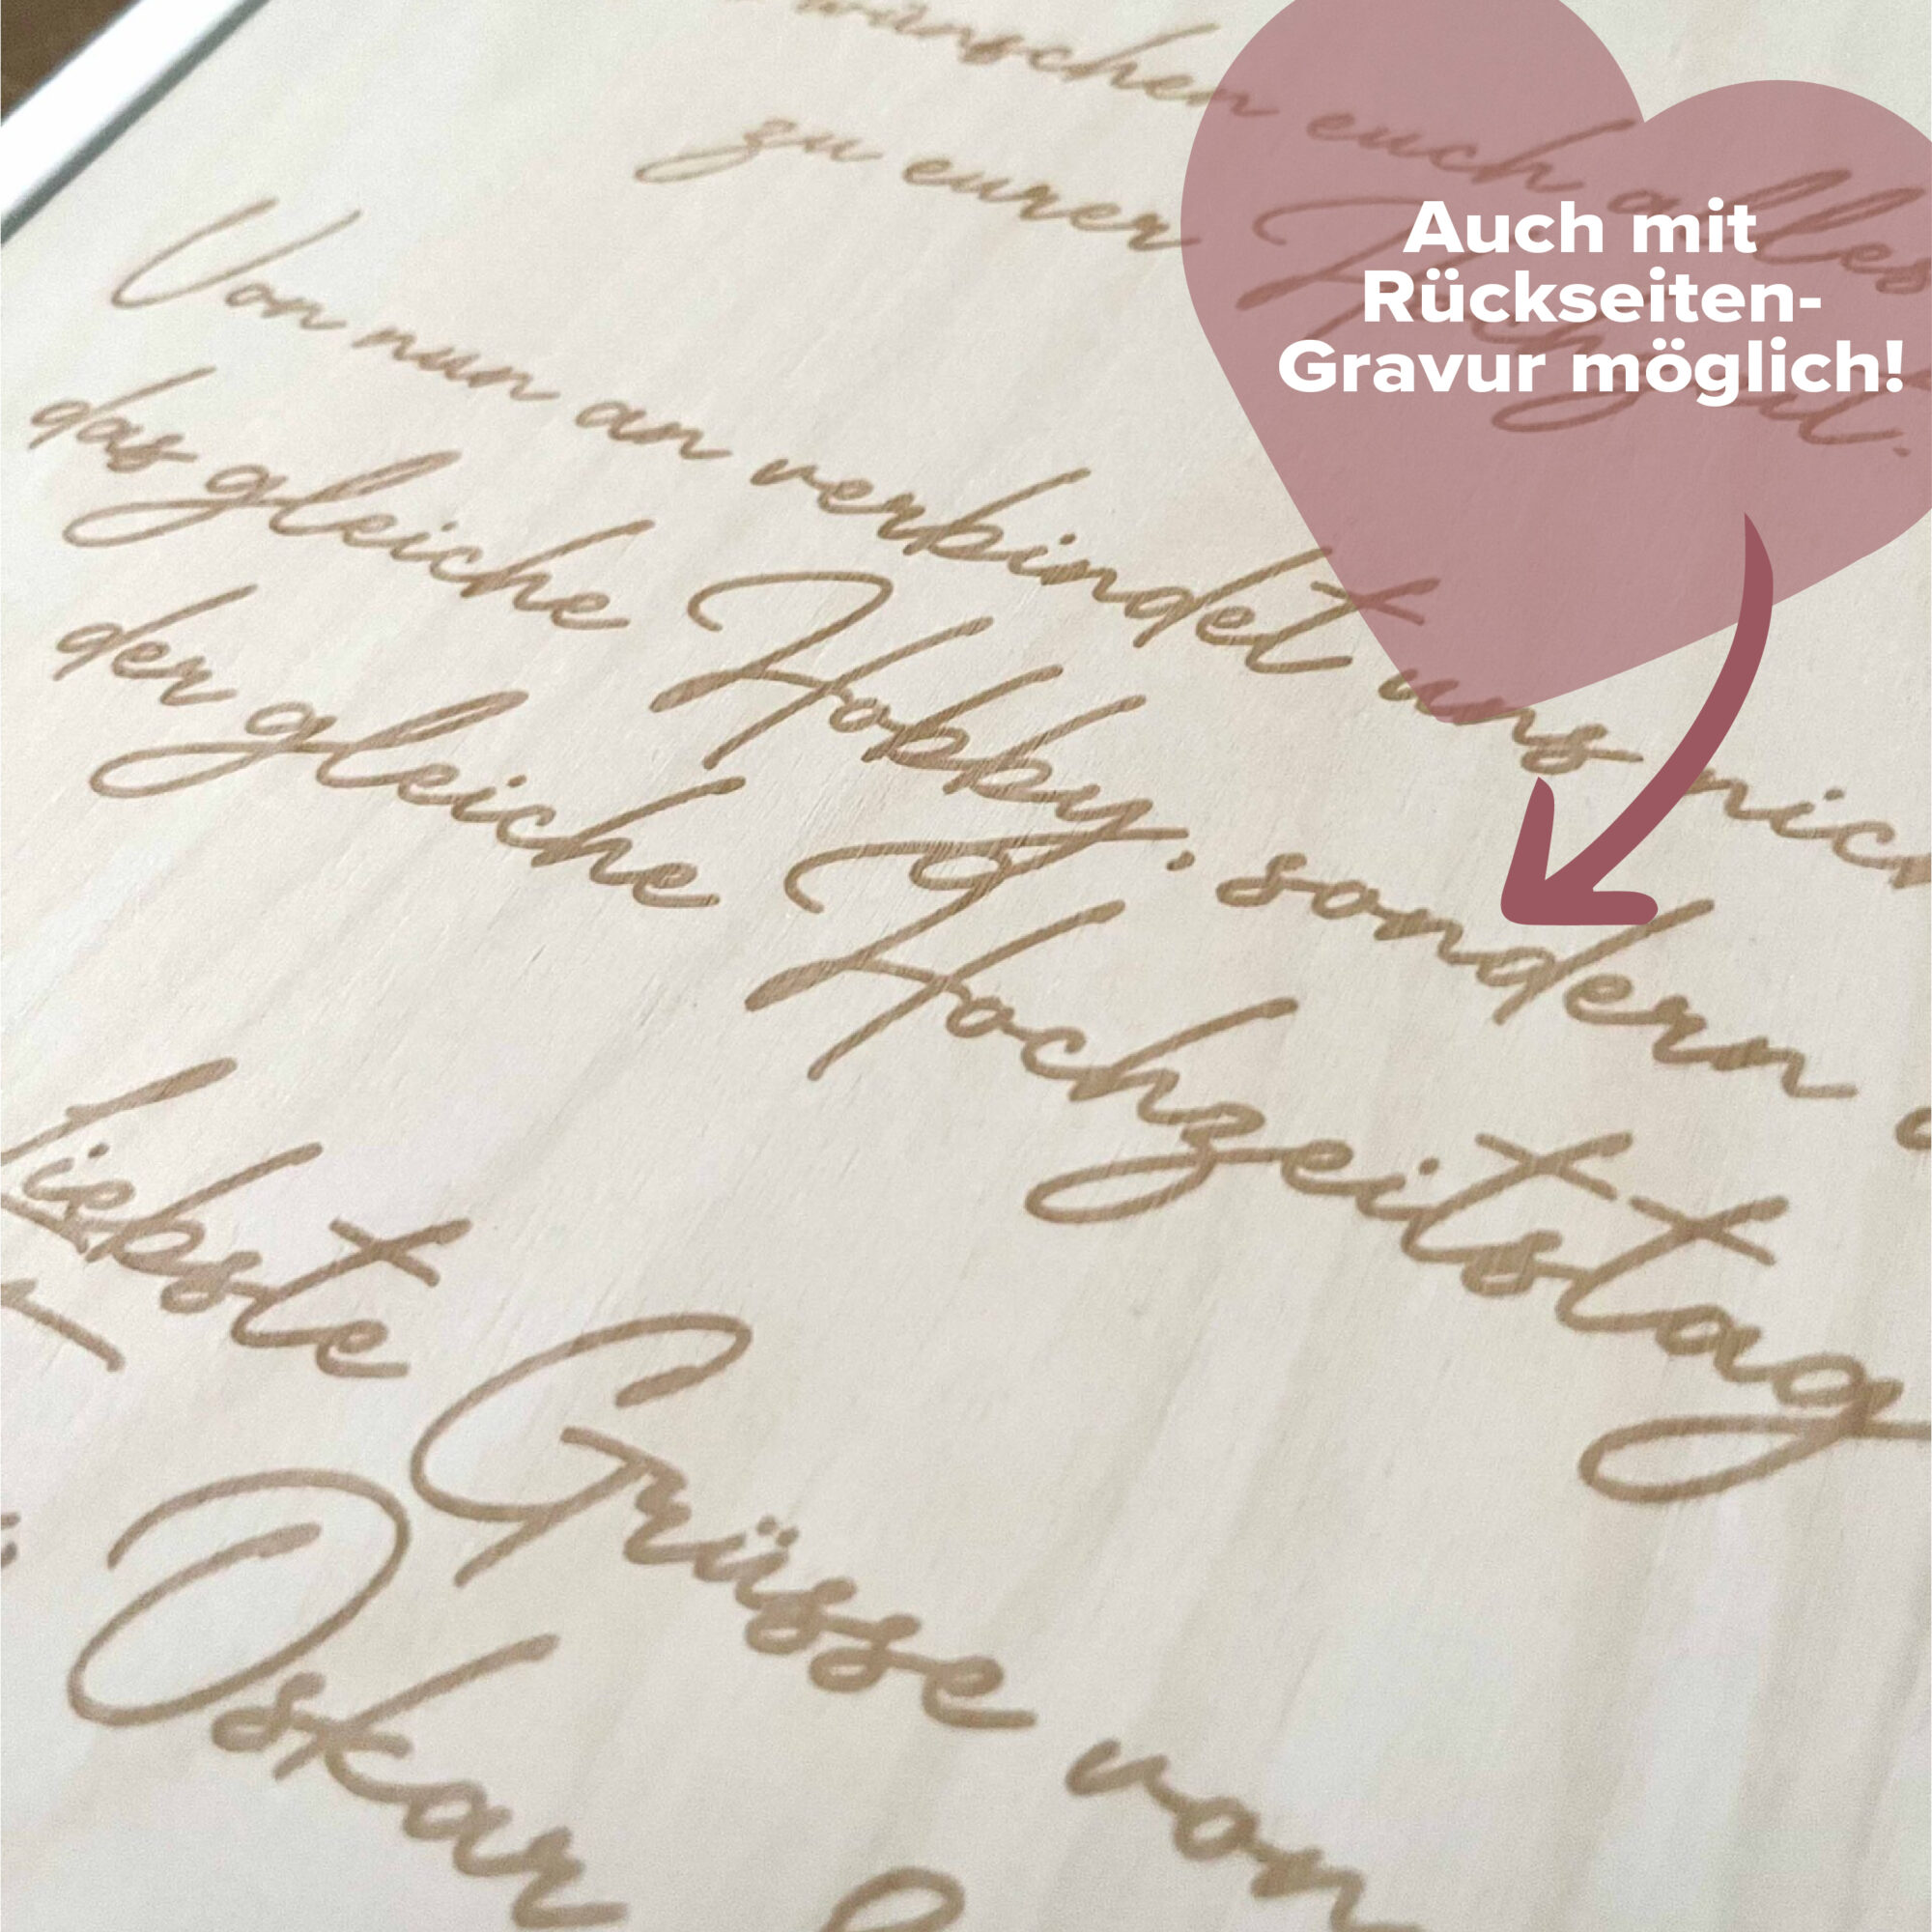 wünschen euch alles
zu eurer Hochzeit.
Von nun an verbindet uns
das gleiche Hobby, sondern
der gleiche Hochzeitstag
liebste Grüsse von
Oskar
Auch mit
Rückseiten-
Gravur möglich!